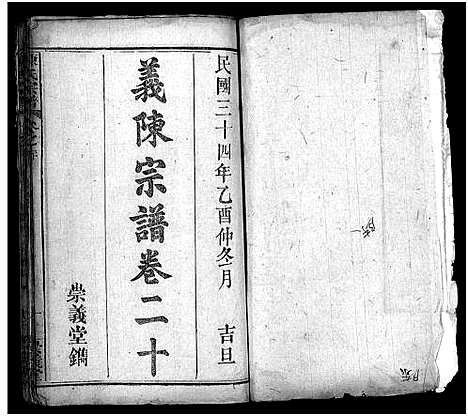 民國三十四年乙酉仲冬月 吉旦
義陳宗譜卷二十
崇義堂鐫